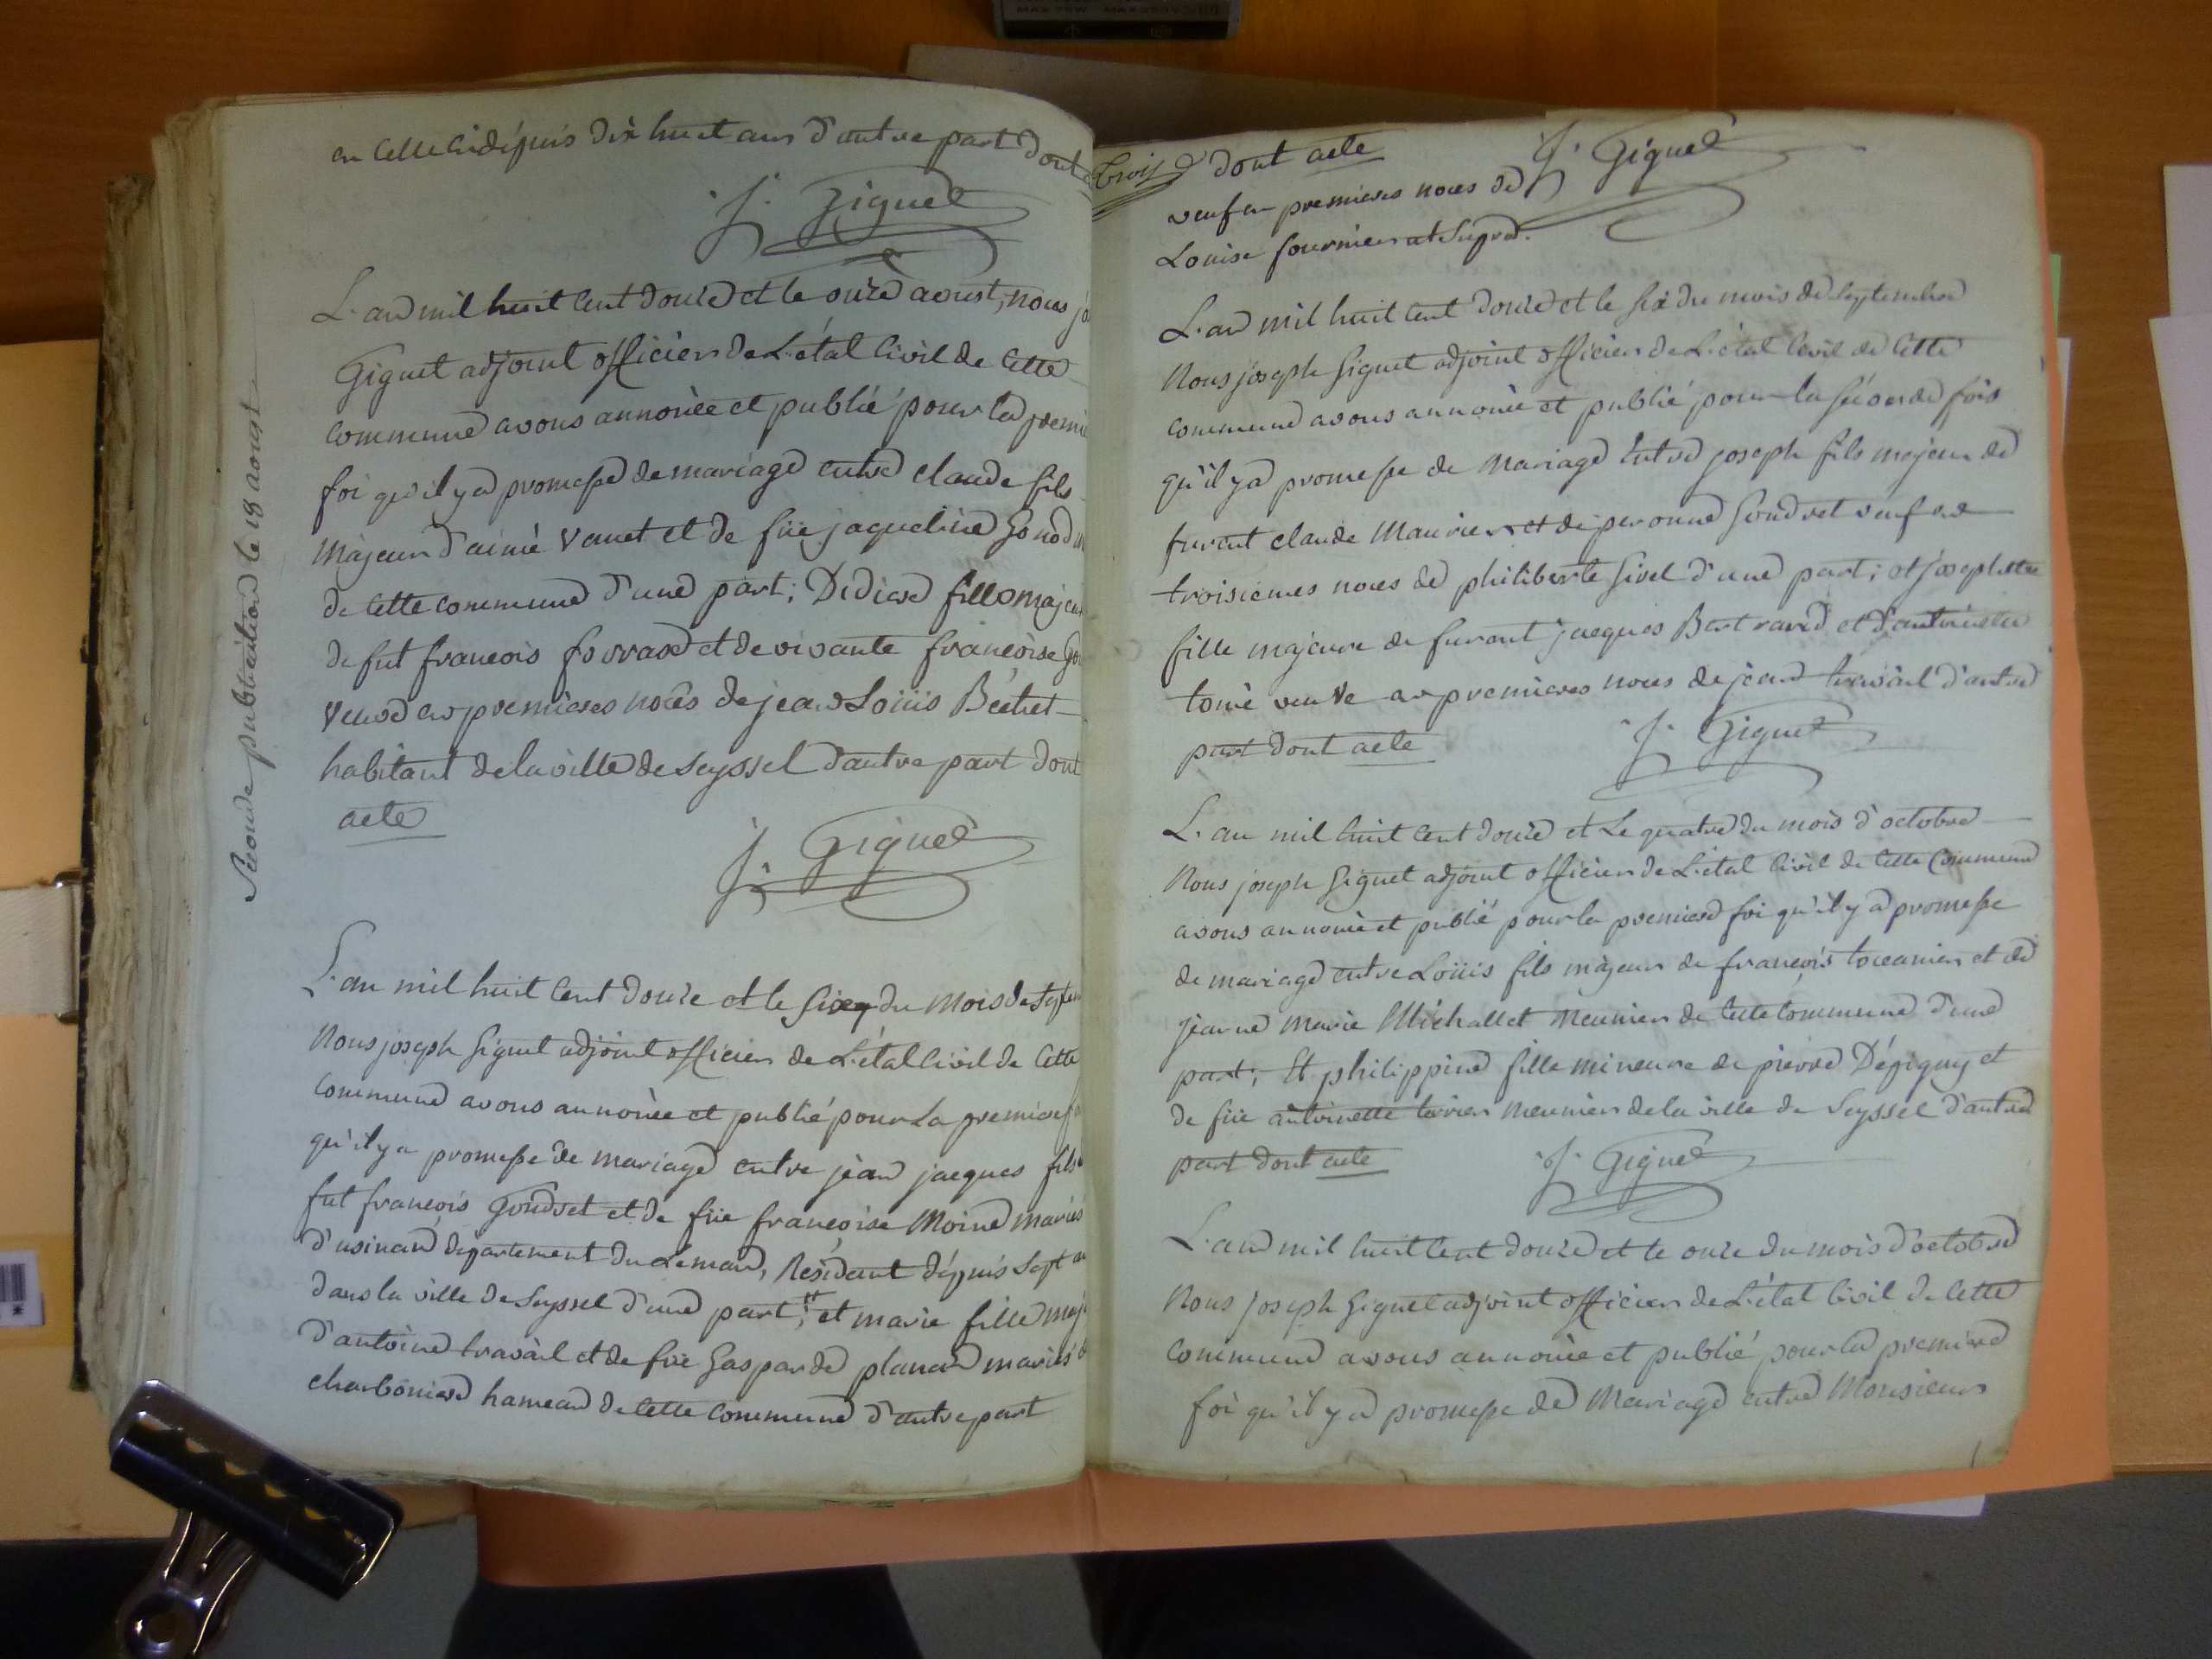 en celle ci dépuis dix huit ans d'autre part dont
J. Giguet
Seconde publication le 18 aoust
L'an mil huit cent douze et le onze aoust, nous jo
Giguet adjoint officier de L'état Civil de Cette
commune avons annoncée et publié pour la premie
foi qu'il y a promesse de mariage entre claude fils
Majeur d'aimé Vanet et de füe jaqueline
de Cette commune d'une part; Didiere fille majeu
de fut francois et de vivante françoise
Veuve en premieres noces de jean Loüis Béchet
habitant de la ville de Seyssel d'autre part dont
acte
J. Giguet
L'an mil huit Cent douze et le six du mois de
Nous joseph Giguet adjoint officier de L'état Civil de Cette
commune avons annoncée et publié pour La premiere
qu'il y a promesse de mariage entre jean jacques fils
fut francois Goudret et de füe françoise Moine mariés
d'usinand département du Leman, Résidant dépuis Sept an
dans la ville de Seyssel d'une part; # et marie fille maj
d'antoine travail et de füe Gasparde planard mariés
charboniere hameau de Cette commune d'autre part
Trois # dont acte J. Giguet
veuf en premieres noces de
Louise fournier
L'an mil huit cent douze et le six du mois de septembre
Nous joseph Giguet adjoint officier de L'état Civil de Cette
commune avons annoncée et publié pour la séconde fois
qu'il y a promesse de Mariage Entre joseph fils majeur de
furent claude Maurier et de peronne Goudret veuf en
troisiemes noces de philiberte Givel d'une part; et josephte
fille majeure de furent jacques Bertrand et d'antoinette
tomé veuve en premieres noces de jean travail d'autre
part dont acte J. Giguet
L'an mil huit Cent douze et Le quatre du mois d'octobre
Nous joseph Giguet adjoint officier de L'état Civil de Cette Commune
avons annoncée et publié pour la premiere foi qu'il y a promesse
de mariage entre Loüis fils majeur de françois et de
jeanne Marie Michallet Meunier de Cette Commune d'une
part; Et philippine fille mineure de pierre Dépigny et
de füe antoinette terrier Meunier de la ville de Seyssel d'autre
part dont acte J. Giguet
L'an mil huit Cent douze et le onze du mois d'octobre
Nous joseph Giguet adjoint officier de L'état Civil de Cette
Commune avons annoncée et publié pour la premiere
foi qu'il y a promesse de Mariage entre Monsieur